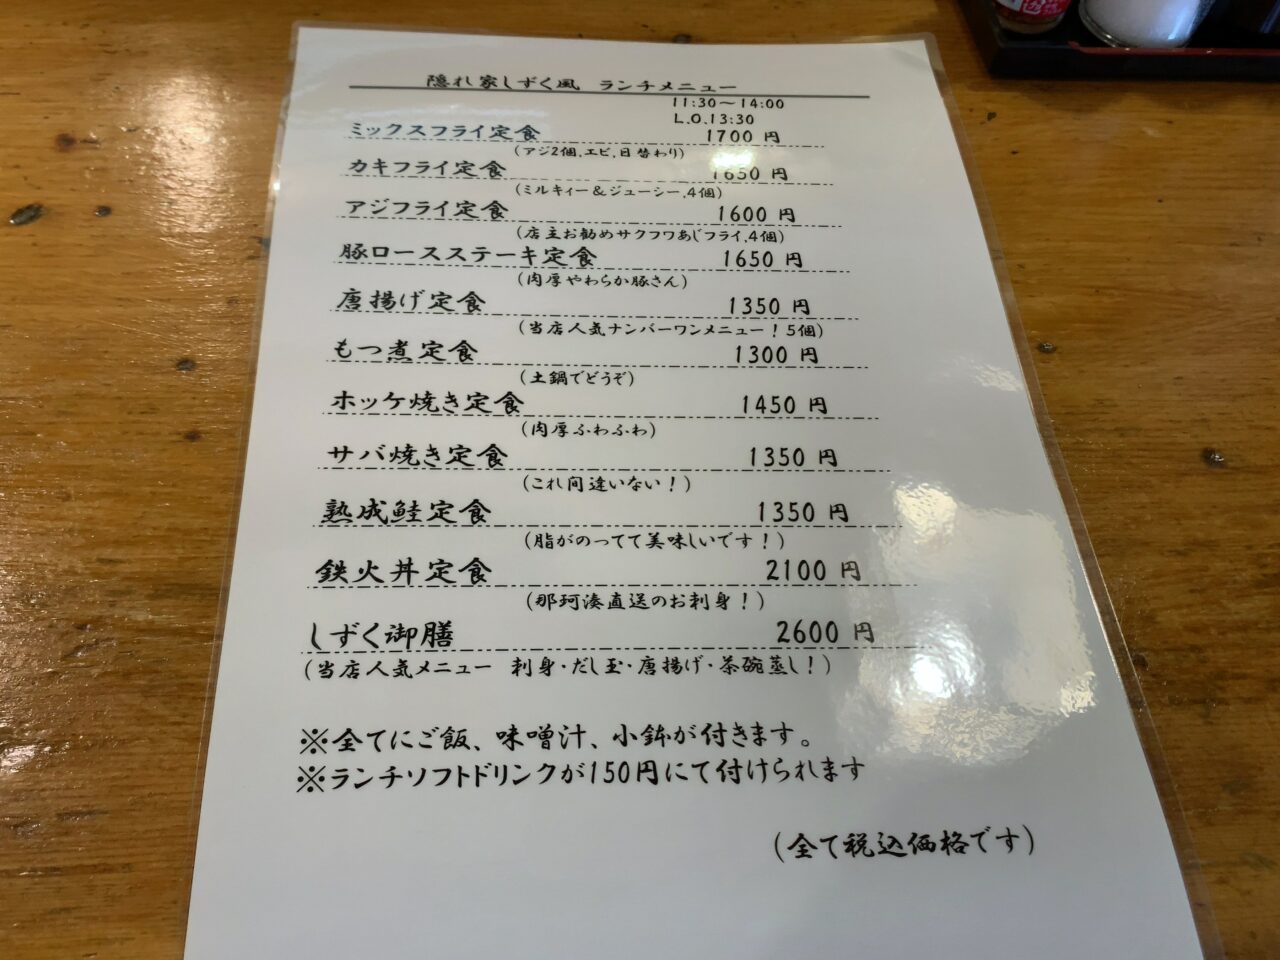 隠れ家しずく風 ランチメニュー
11:30～14:00
L.O.13:30
ミックスフライ定食 1700 円
(アジ2個,エビ,日替わり)
カキフライ定食 1650 円
(ミルキィー＆ジューシー,4個)
アジフライ定食 1600 円
(店主お勧めサクフワあじフライ,4個)
豚ロースステーキ定食 1650 円
(肉厚やわらか豚さん)
唐揚げ定食 1350 円
(当店人気ナンバーワンメニュー！5個)
もつ煮定食 1300 円
(土鍋でどうぞ)
ホッケ焼き定食 1450 円
(肉厚ふわふわ)
サバ焼き定食 1350 円
(これ間違いない！)
熟成鮭定食 1350 円
(脂がのってて美味しいです！)
鉄火丼定食 2100 円
(那珂湊直送のお刺身！)
しずく御膳 2600 円
(当店人気メニュー 刺身・だし玉・唐揚げ・茶碗蒸し！)
※全てにご飯、味噌汁、小鉢が付きます。
※ランチソフトドリンクが150円にて付けられます
(全て税込価格です)